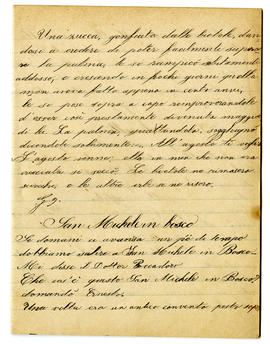 Una zucca, gonfiata dalle bietole, dan
dosi a credere di poter facilmente supera
re la palma, le se rampicò arditamente
addosso, e crescendo in pochi giorni quello
non aveva fatto appena in cento anni,
le se pose sopra a capo rimproverandole
d'essere così prestamente divenuta maggio
re di lei. La palma, guardandola, sogghignò
dicendole solamente: All'agosto ti
L'agosto venne; ella in men che non era
cresciuta si seccò. Le bietole ne rimasero
e le altre erbe ne risero.
San Michele in bosco
Se domani ci avanza un po' di tempo
dobbiamo salire a San Michele in Bosco
Mi disse il Dottor
Che cos'è questo San Michele in Bosco?
domandò Ernesto.
Una volta era un antico convento posto sopra